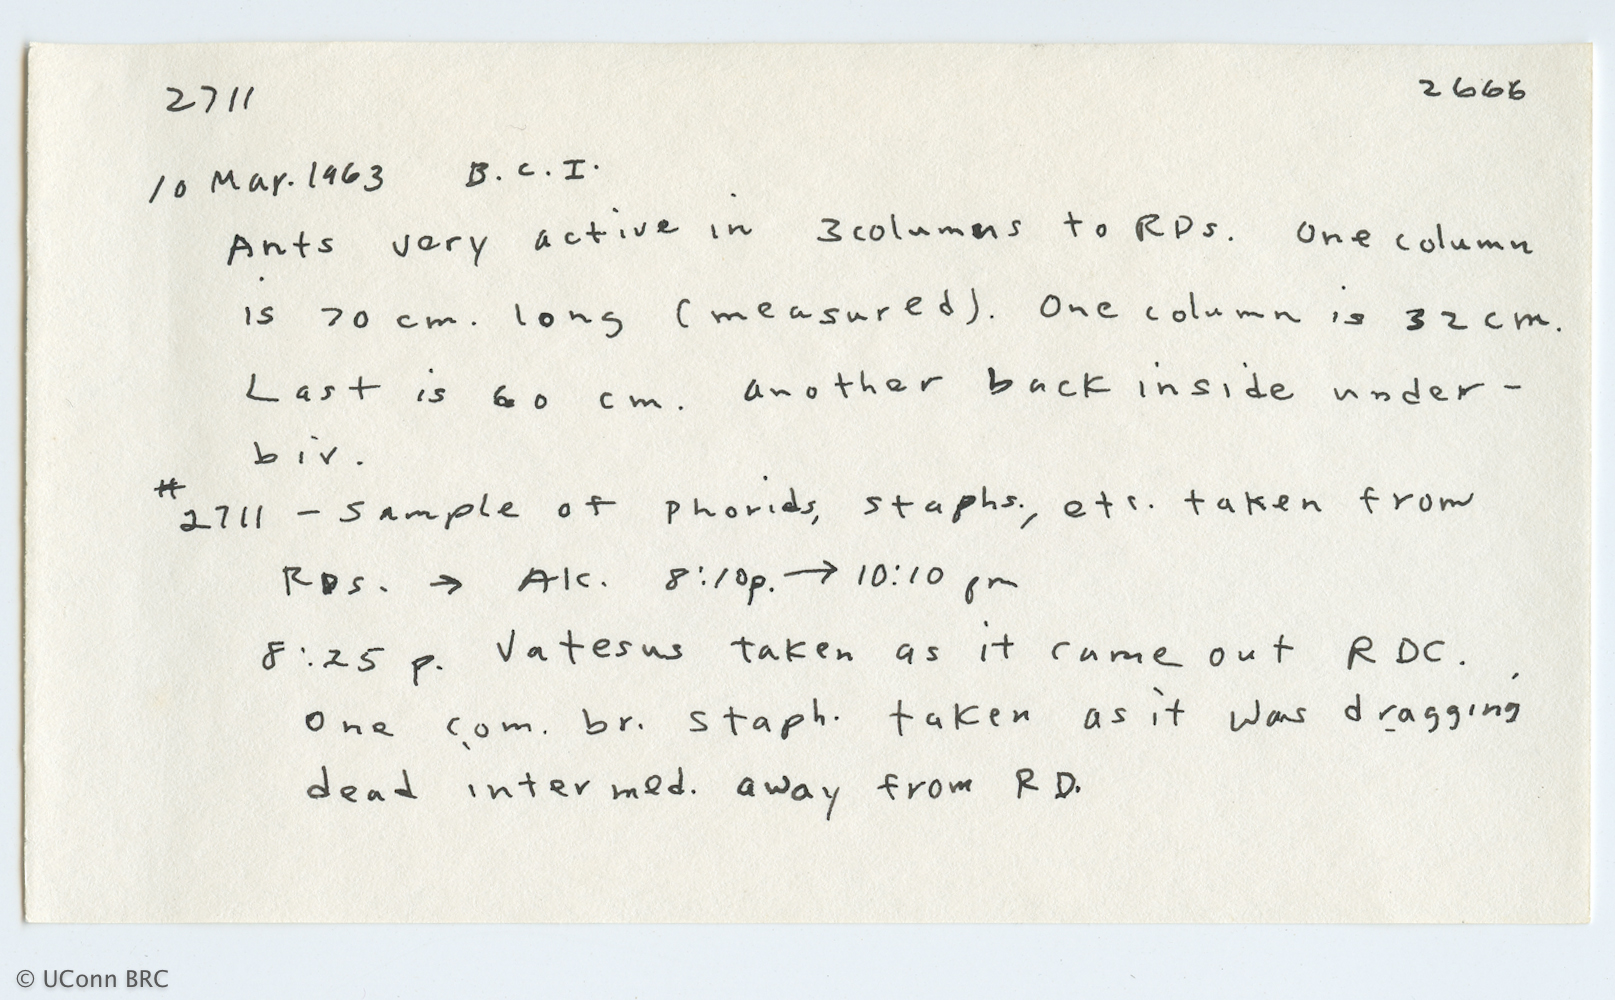 2711 2666
10 Mar. 1963 B.C.I.
Ants very active in 3 columns to RDs. One column
is 70 cm. long (measured). One column is 32 cm.
Last is 60 cm. another back inside under-
biv.
#2711 - Sample of phorids, staphs., etc. taken from
RDs. → Alc. 8:10p. → 10:10 pm
8:25 p. Vatesus taken as it came out RDC.
One com. br. staph. taken as it was dragging
dead intermed. away from RD.
© UConn BRC